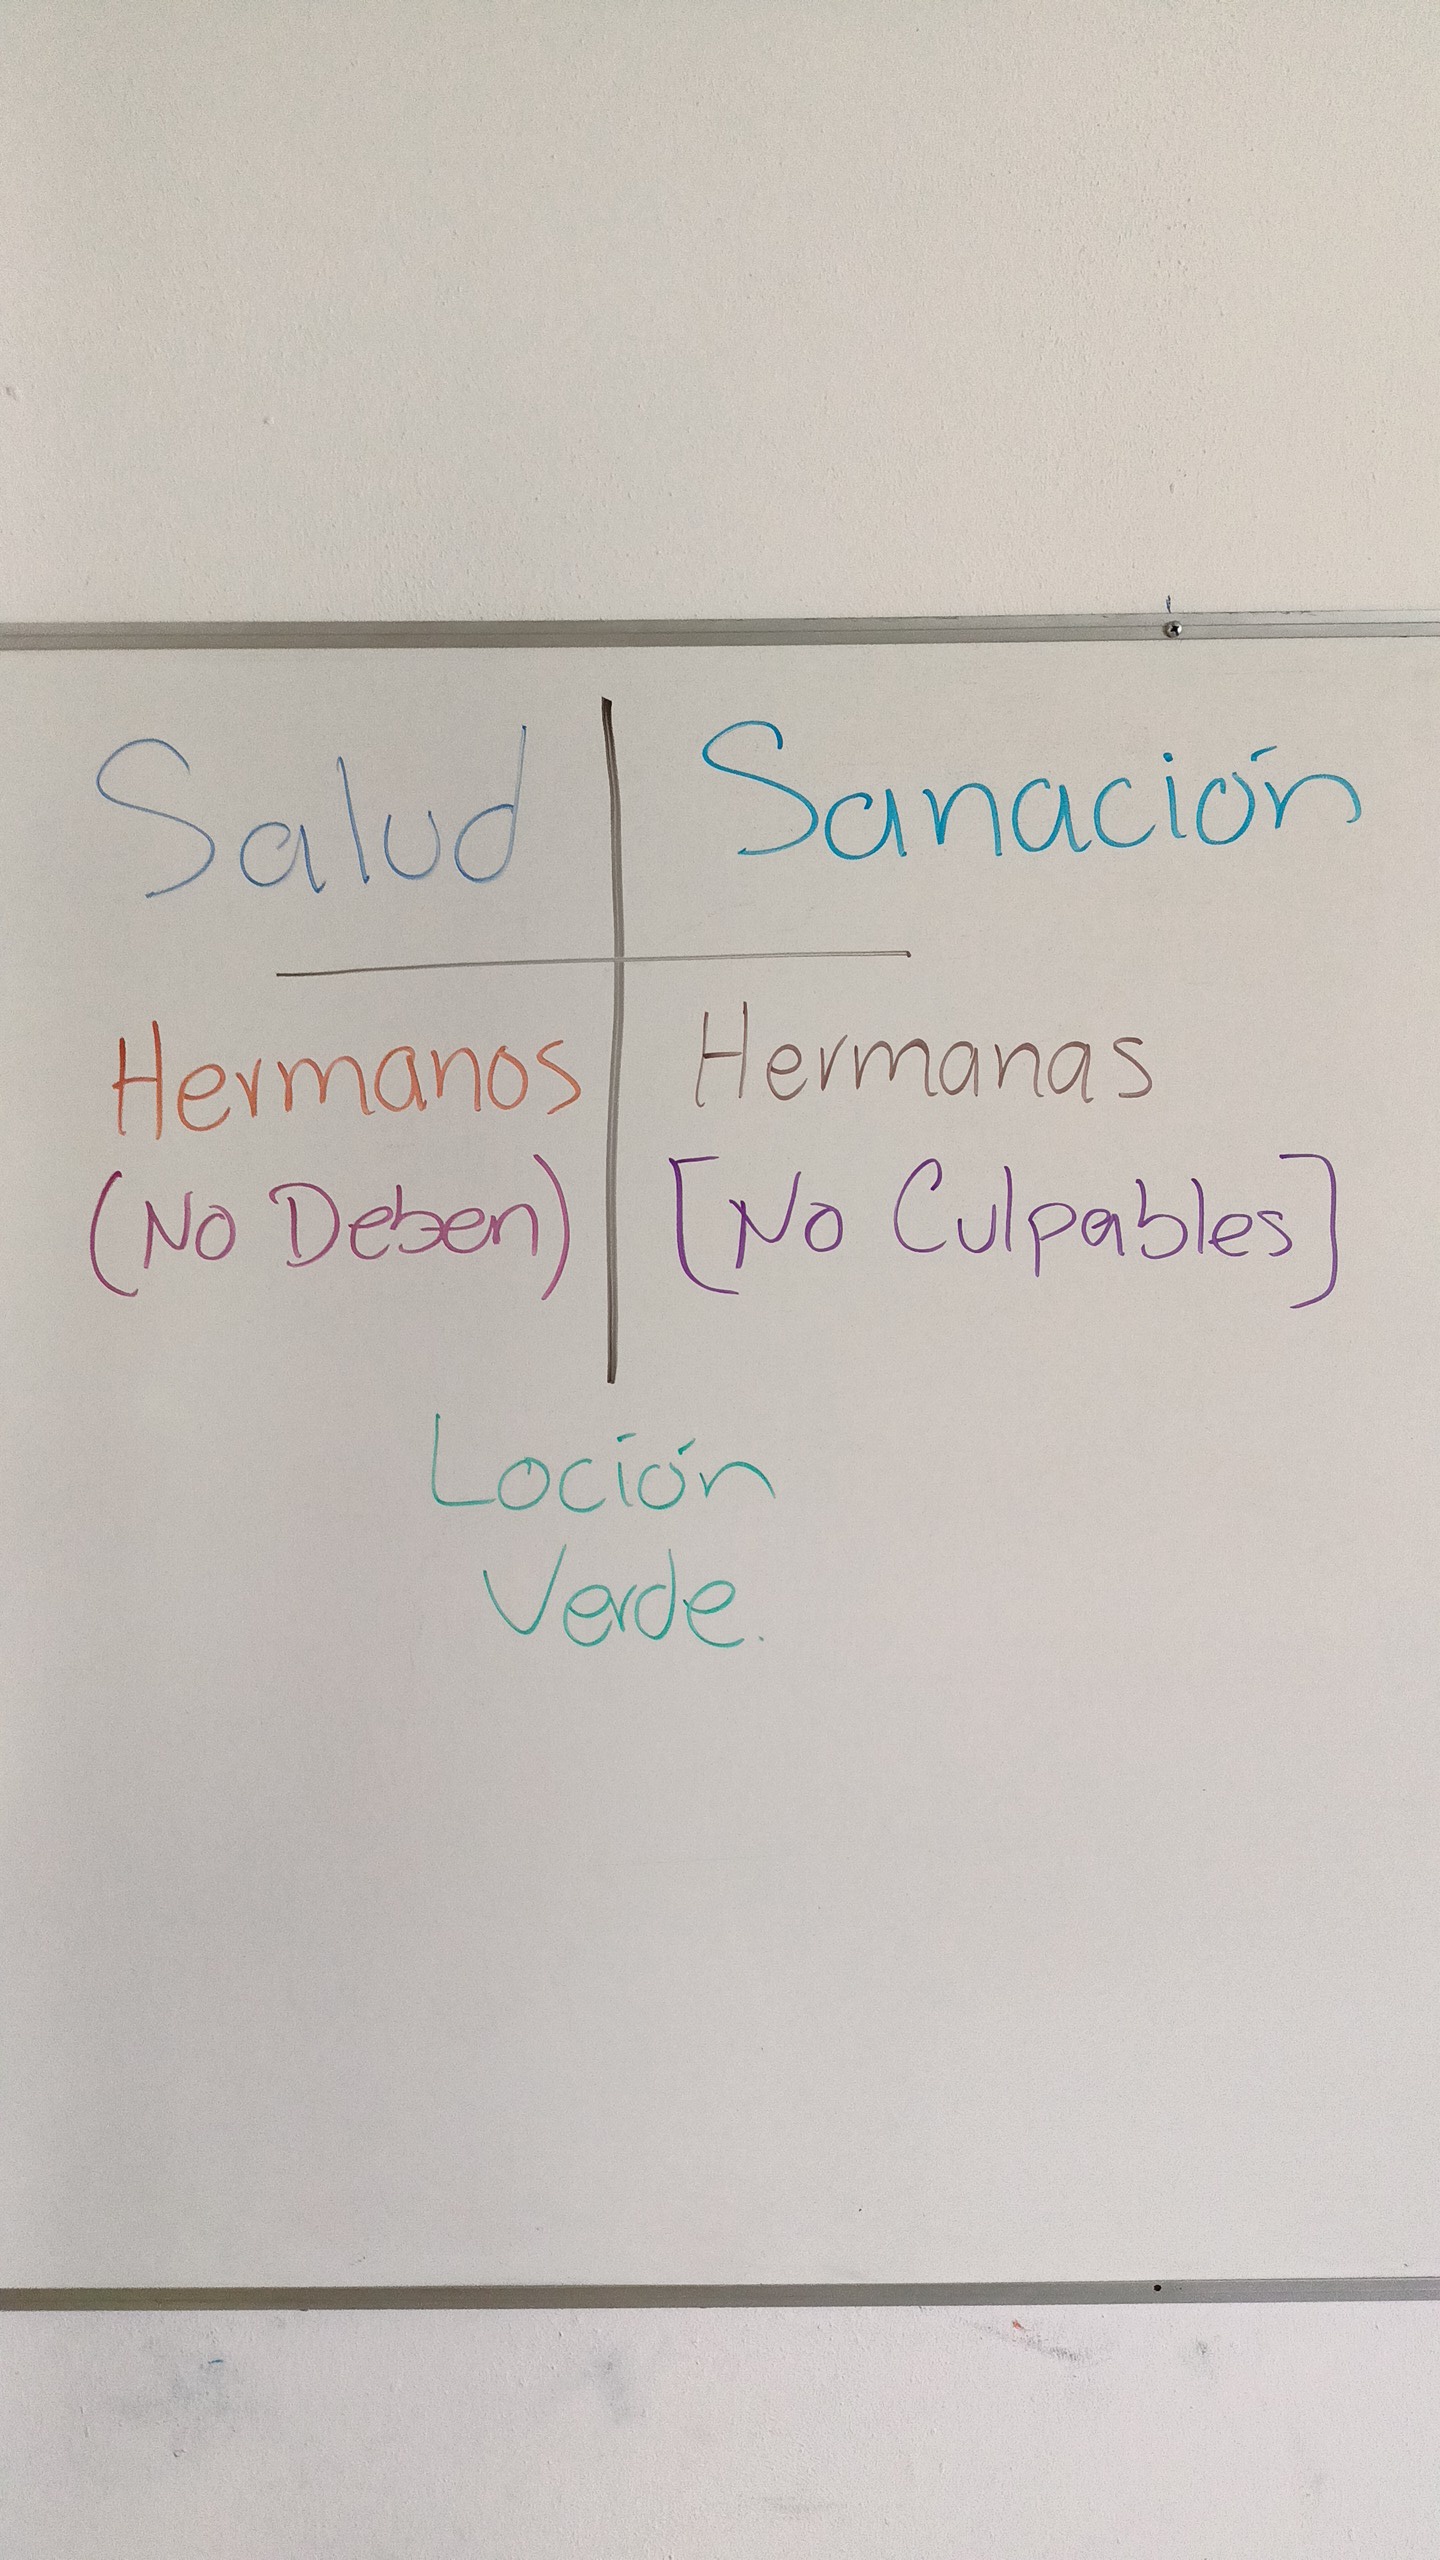 Salud
Sanación
Hermanos
Hermanas
(No Deben)
[No Culpables]
Loción
Verde.